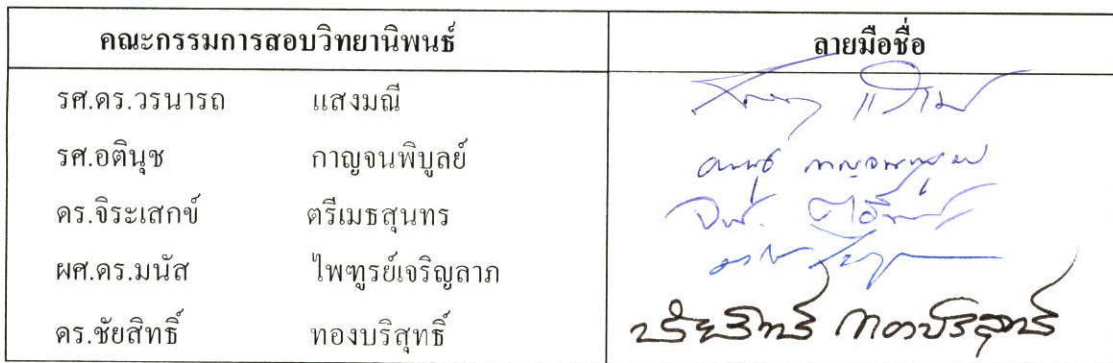 คณะกรรมการสอบวิทยานิพนธ์ ลายมือชื่อ
รศ.ดร.วรนารถ แสงมณี
รศ.อตินุช กาญจนพิบูลย์
ดร.จิระเสกข์ ตรีเมธสุนทร
ผศ.ดร.มนัส ไพฑูรย์เจริญลาภ
ดร.ชัยสิทธิ์ ทองบริสุทธิ์ ชัยสิทธิ์ ทองบริสุทธิ์